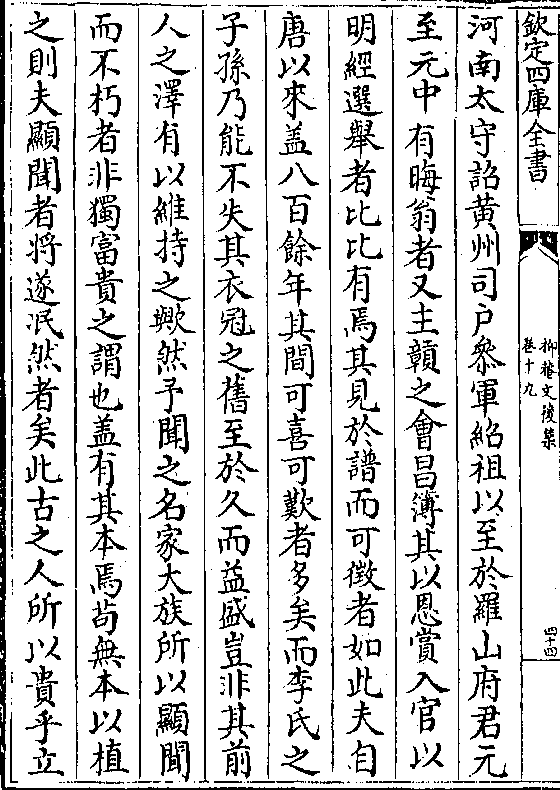 欽定四庫全書
柳塘文後集
卷十九
四十四
河南太守詔黄州司户叅軍紹祖以至於羅山府君元
至元中有晦翁者又主贛之會昌簿其以恩賞入官以
明經選舉者比比有焉其見於譜而可徴者如此夫自
唐以來盖八百餘年其間可喜可歎者多矣而李氏之
子孫乃能不失其衣冠之舊至於久而益盛豈非其前
人之澤有以維持之歟然予聞之名家大族所以顯聞
而不朽者非獨富貴之謂也盖有其本焉苟無本以植
之則夫顯聞者將遂泯然者矣此古之人所以貴乎立